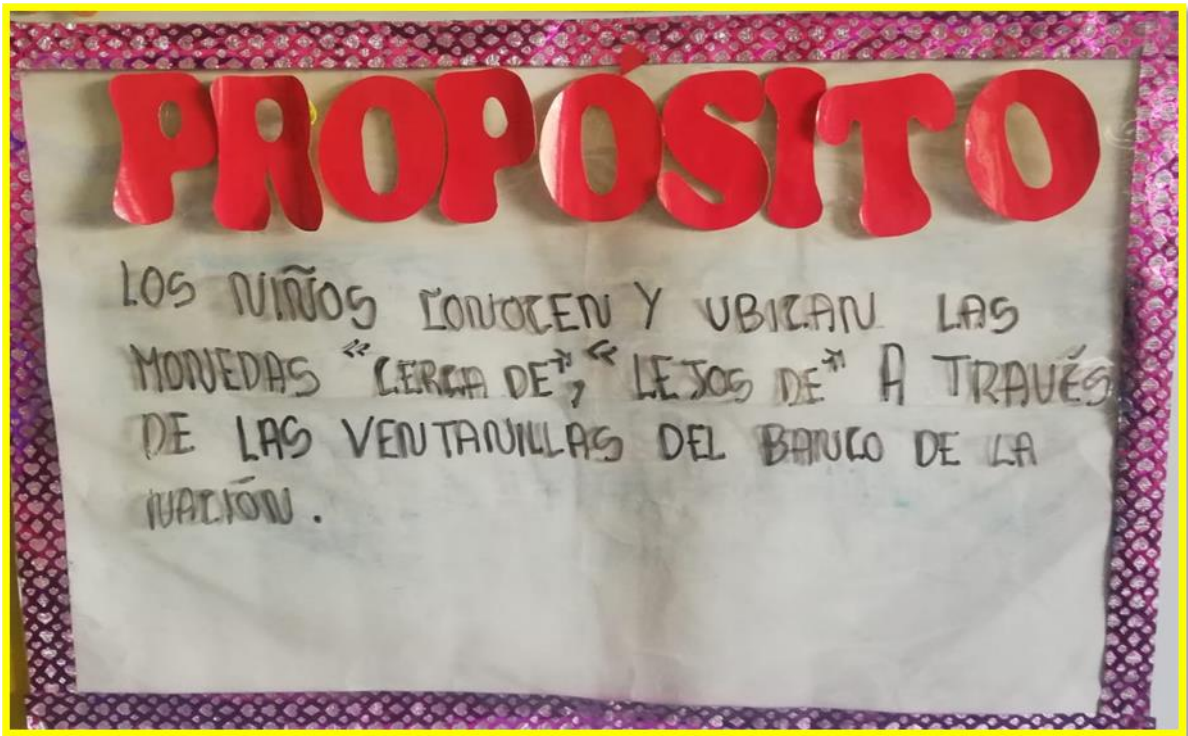 PROPÓSITO
LOS NIÑOS CONOCEN Y UBICAN LAS
MONEDAS "CERCA DE", "LEJOS DE" A TRAVÉS
DE LAS VENTANILLAS DEL BANCO DE LA
NACIÓN.